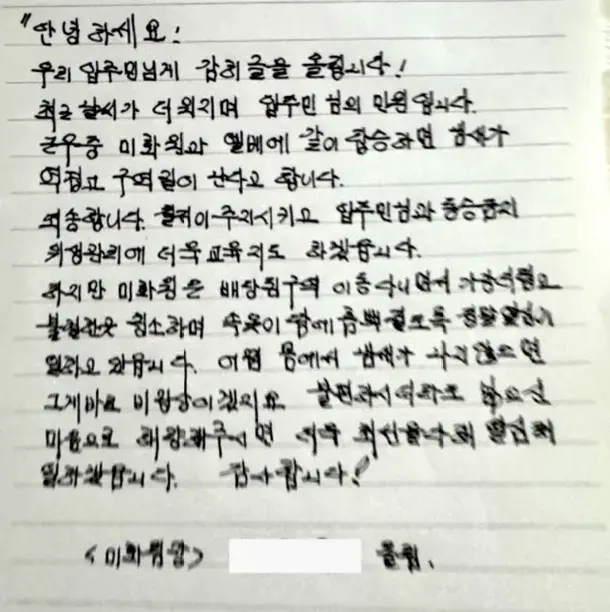 "안녕하세요!
우리 입주민님게 감히 글을 올립니다!
최근 날씨가 더워지며 입주민 님의 민원입니다.
근무중 미화원과 엘베에 같이 탑승하면 냄새가
역겹고 구역질이 난다고 합니다.
죄송합니다. 입주민님과 동승금지
위생관리에 더욱 교육지도 하겠습니다.
하지만 미화원은 배당된구역 이동다니면서
청소하며 속옷이 땀에 흠뻑 젖도록 정말
일하고 있습니다. 어찌 몸에서 냄새가 나지않으면
그게바로 비정상이겠지요 불편하시더라도 넓으신
마음으로 해주시면 더욱 최선을다해 열심히
일하겠습니다. 감사합니다!
<미화팀장> 올림.